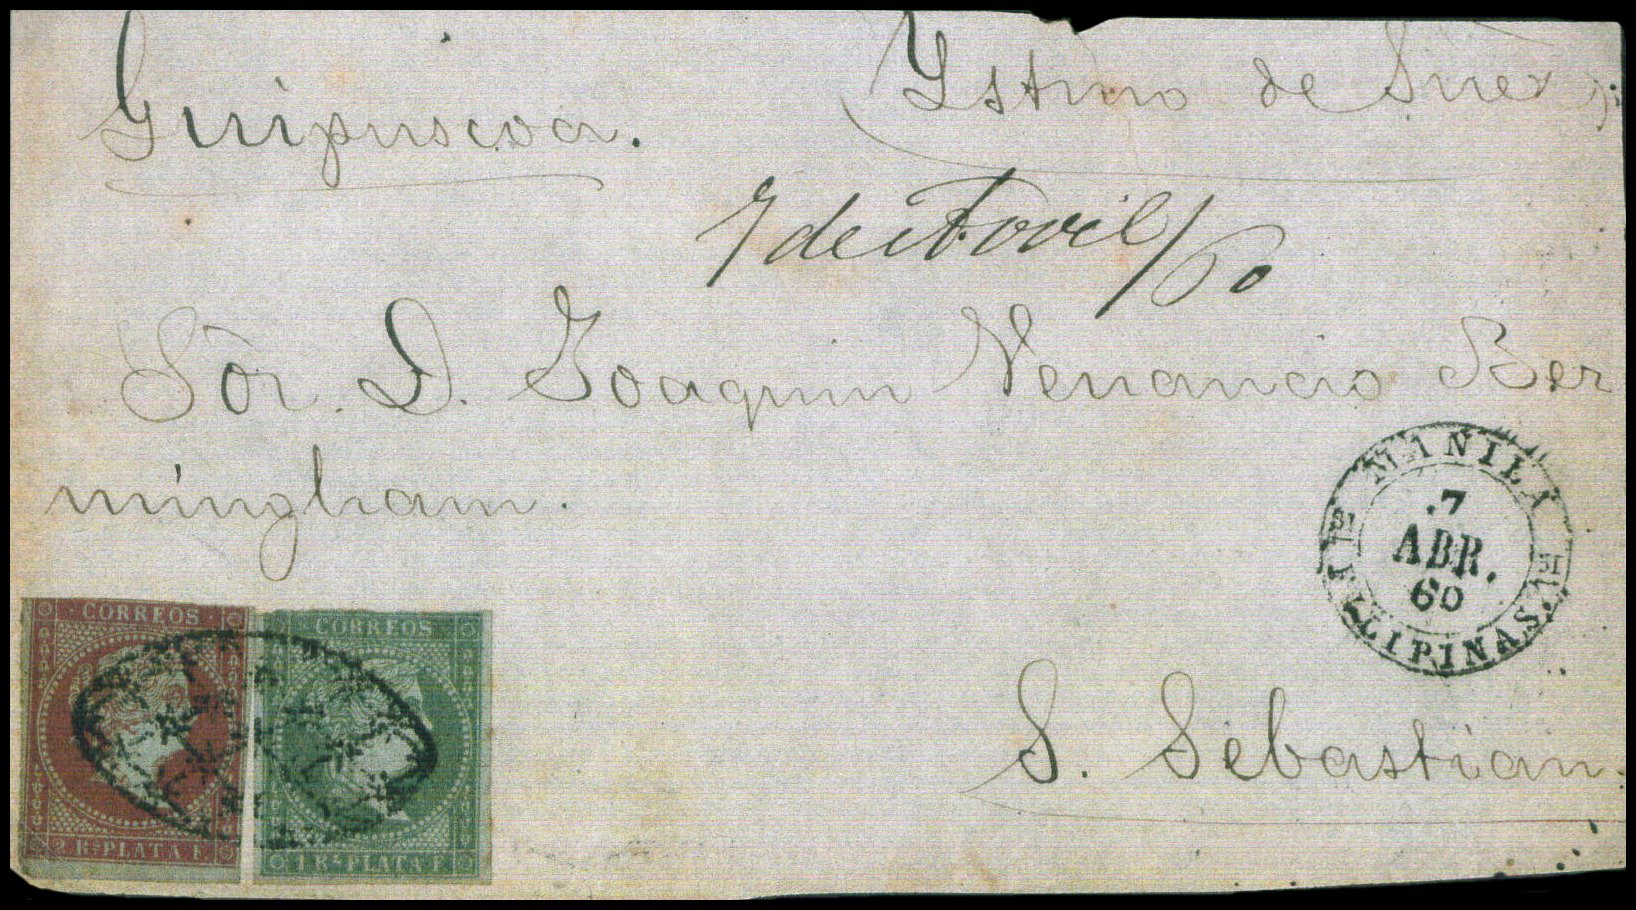 Guipuscoa.
Ystmo de Suez
7 de Abril/60
Sõr. D. Joaquin Venancio Ber
mingham.
MANILA
7
ABR.
60
FILIPINAS
S. Sebastian.
CORREOS
2 Rs PLATA F.
CORREOS
1 Rl PLATA F.